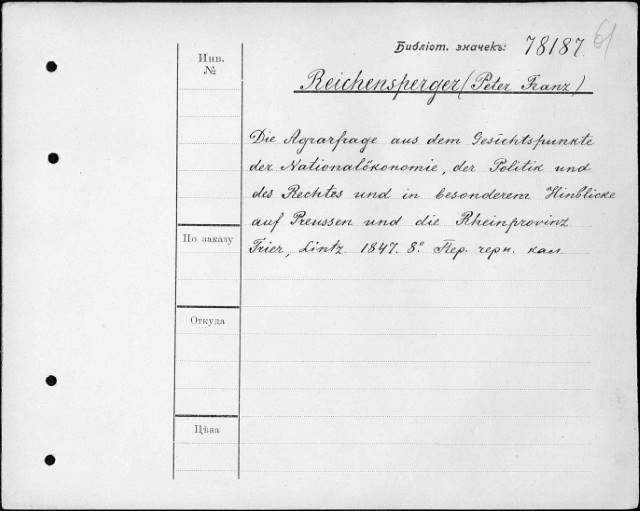 Библіот. значекъ: 78187.
Инв.
№
Reichensperger (Peter Franz)
Die Agrarfrage aus dem Gesichtspunkte
der Nationalökonomie, der Politik und
des Rechtes und in besonderem Hinblicke
auf Preussen und die Rheinprovinz
Trier, Lintz 1847. 8° Пер. черн. кал.
По заказу
Откуда
Цѣна